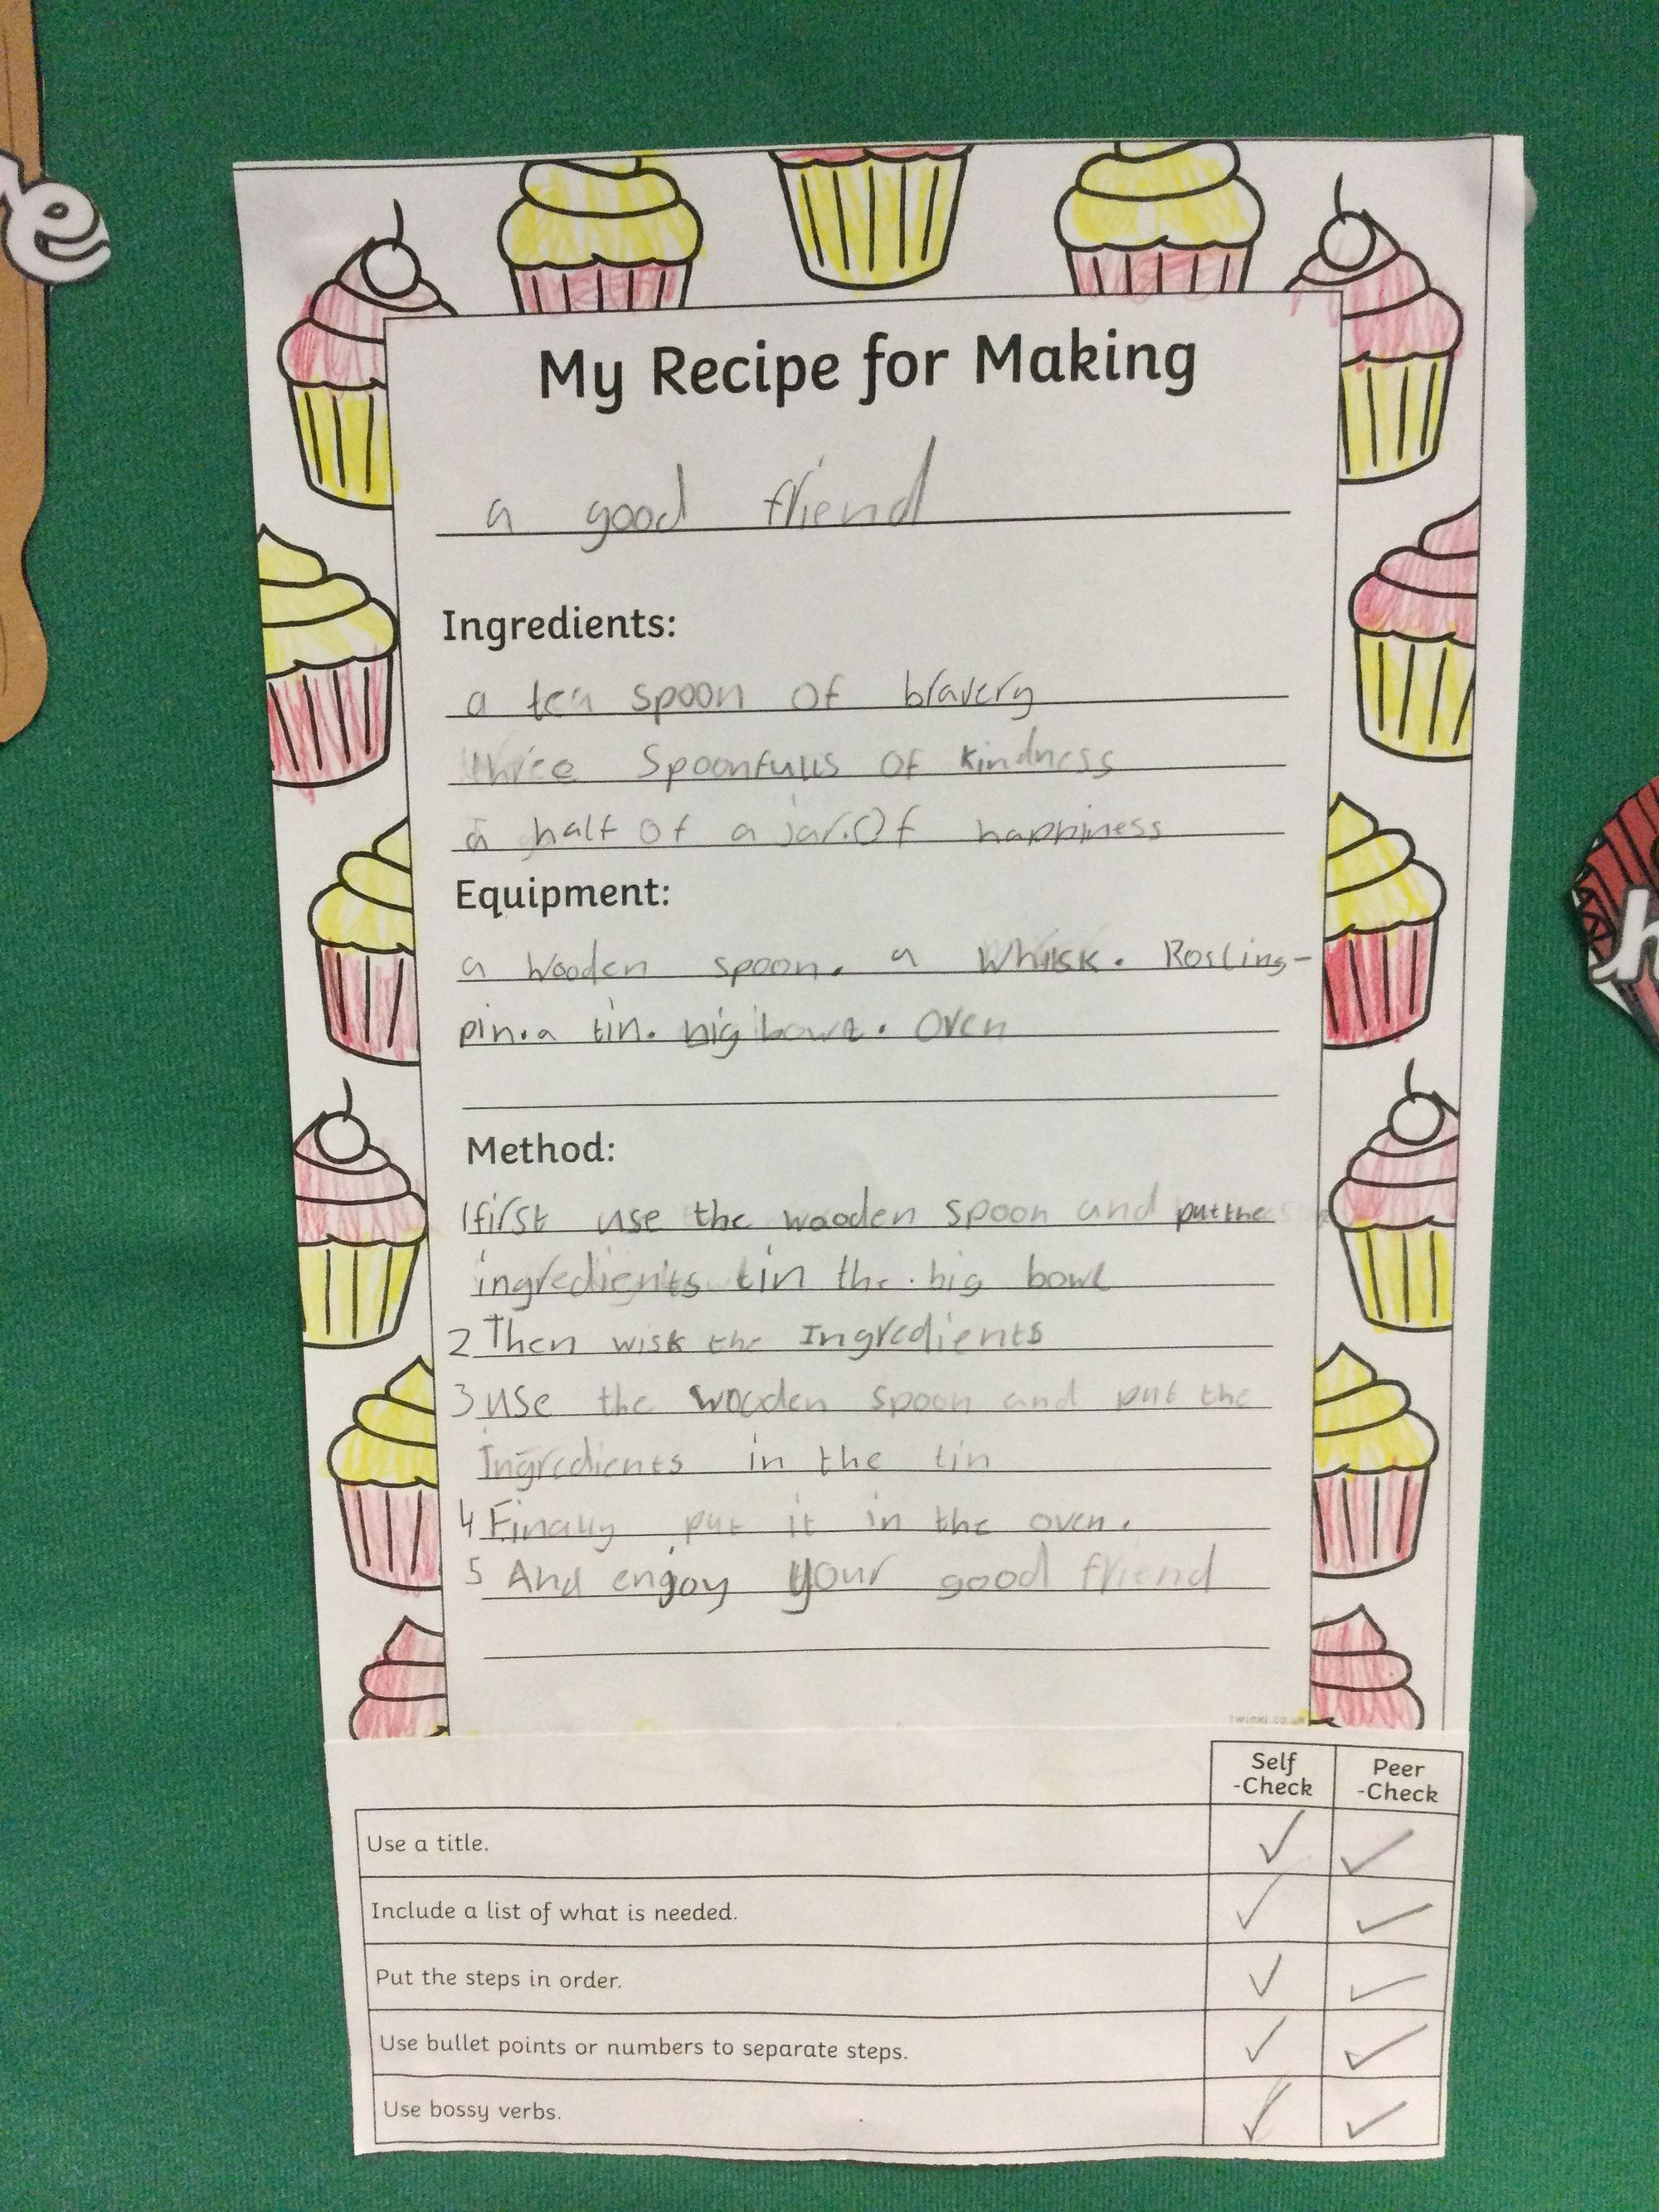 My Recipe for Making
a good friend
Ingredients:
a tea spoon of bravery
three spoonfulls of kindness
a half of a jar.Of happiness
Equipment:
a wooden spoon. a whisk. Rosling-
pin.a tin. big bowl. oven
Method:
1first use the wooden spoon and put the
ingredients in the big bowl
2 Then wisk the Ingredients
3 use the wooden spoon and put the
Ingredients in the tin
4 Finally put it in the oven.
5 And engoy your good friend
twinkl.co.uk
Self
-Check
Peer
-Check
Use a title. ✓ ✓
Include a list of what is needed. ✓ ✓
Put the steps in order. ✓ ✓
Use bullet points or numbers to separate steps. ✓ ✓
Use bossy verbs. ✓ ✓
e
h